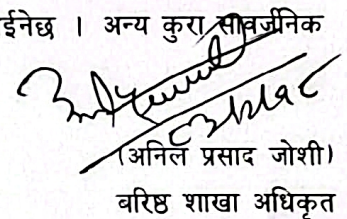 ईनेछ । अन्य कुरा सार्वजनिक
(अनिल प्रसाद जोशी)
वरिष्ठ शाखा अधिकृत